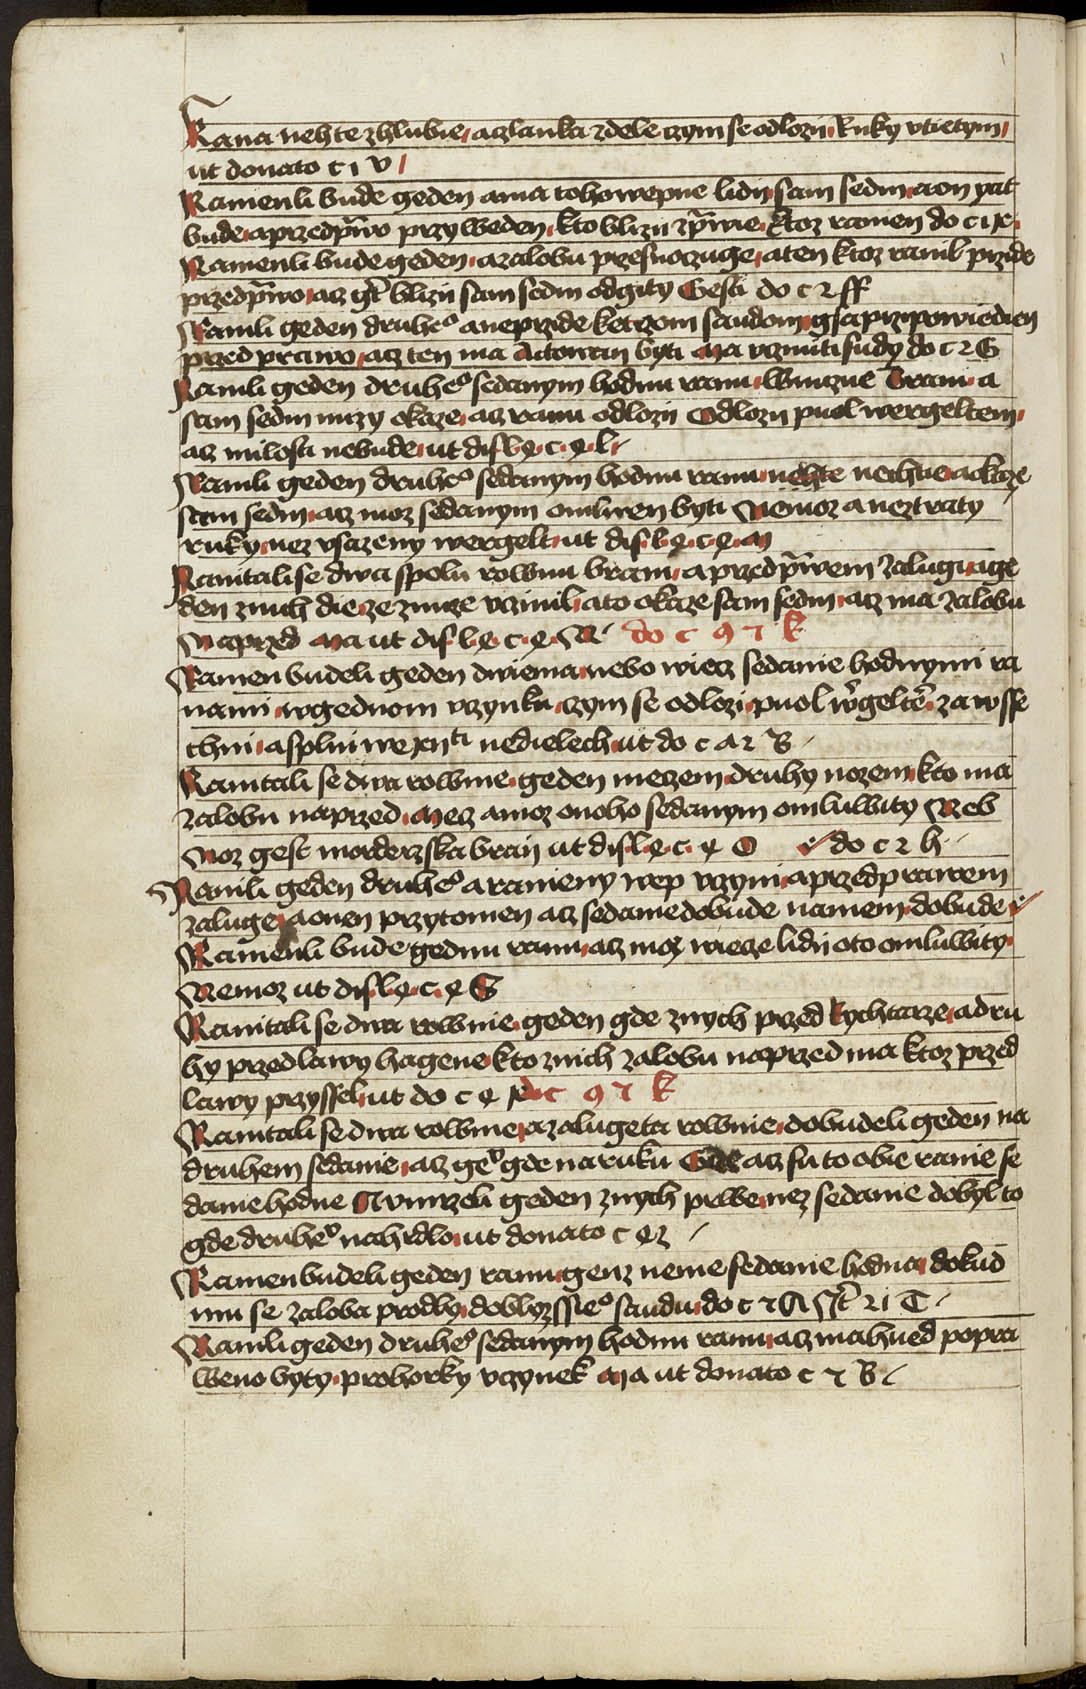 Rana nehte zhlubie aczlanka zdele czym se odlozii Ruky vtietym
ut donato c i v
Ramenli bude geden ama toho wepne lidii sam sedm a on yat
bude a przedpwo przyweden kto blizii zpwie ktoz ramen do c i x
Ramenli bude geden a zalobu przesuoczuge a ten ktoz ranil przide
przedpwo acz gt blizii sam sedm odgity Gesti do c 2 ff
Ranili geden druheo a neprzide ke trzom saudom gsa przipowiedien
przed prawo acz ten ma aitowan byti Ma vczniti sudy do c 2 G
Ranili geden druheo sedanym hodnu ranu wmuzue brani a
sam sedm mzy okaze acz ranu odlozii Odlozii puol wergeltem
acz milosti nebude ut dis l q c q l
Ranili geden druheo sedanym hodnu ranu nehte nechtie a okaze
sam sedm acz moz sedanym omluwen byti Nemoz a neztraty
ruky nez vsazeny wergelt ut dis l q c q m
Ranitalise dwa spolu rownu brani a przedpwem zalugi a ge
den znich die ze zmze vczinil a to okaze sam sedm acz ma zalobu
Naprzed Ma ut dis l q c q N do c 9 7 k
Ramen budeli geden dwiema nebo wiecz sedanie hodnymi ra
nami w gednom vczynku czym se odlozi puol wgelte za wsse
chni a splni we xnti nedielech ut do c a 2 B
Ranitali se dwa rownie geden meczem druhy nozem kto ma
zalobu naprzed Mecz a moz onoho sedanym omluwity Neb
Noz gest morderzska bran ut dis l q c q O do c 2 h
Ranili geden druheo a ranieny wep vczyni a przedprawem
zaluge a onen przytomen acz sedanie dobude namem dobude
Ramenli bude gednu ranu acz moz wieze lidii oto omluwity
Nemoz ut dis l q c q S
Ranitali se dwa rownie geden gde znych przed Rychtarze a dru
hy przed lawy hagene kto znich zalobu naprzed ma ktoz przed
lawy przyssel ut do c q p do c 9 7 k
Ranitali se dwa rownie a zalugeta rownie dobudeli geden na
druhem sedanie acz geo gde na ruku Gde acz su to obie ranie se
danie hodne A vmrzeli geden znych prwe nez sedanie dobyl to
gde druheo na hrdlo ut donato c q z
Ramen budeli geden ranu genz neme sedanie hodna dokud
mu se zaloba prodly do blyzssieo saudu do c 7 A Jt 21 T
Ranili geden druheo sedanym hodnu ranu acz ma hned popra
weno byty pro horky vczynek Ma ut donato c 7 B